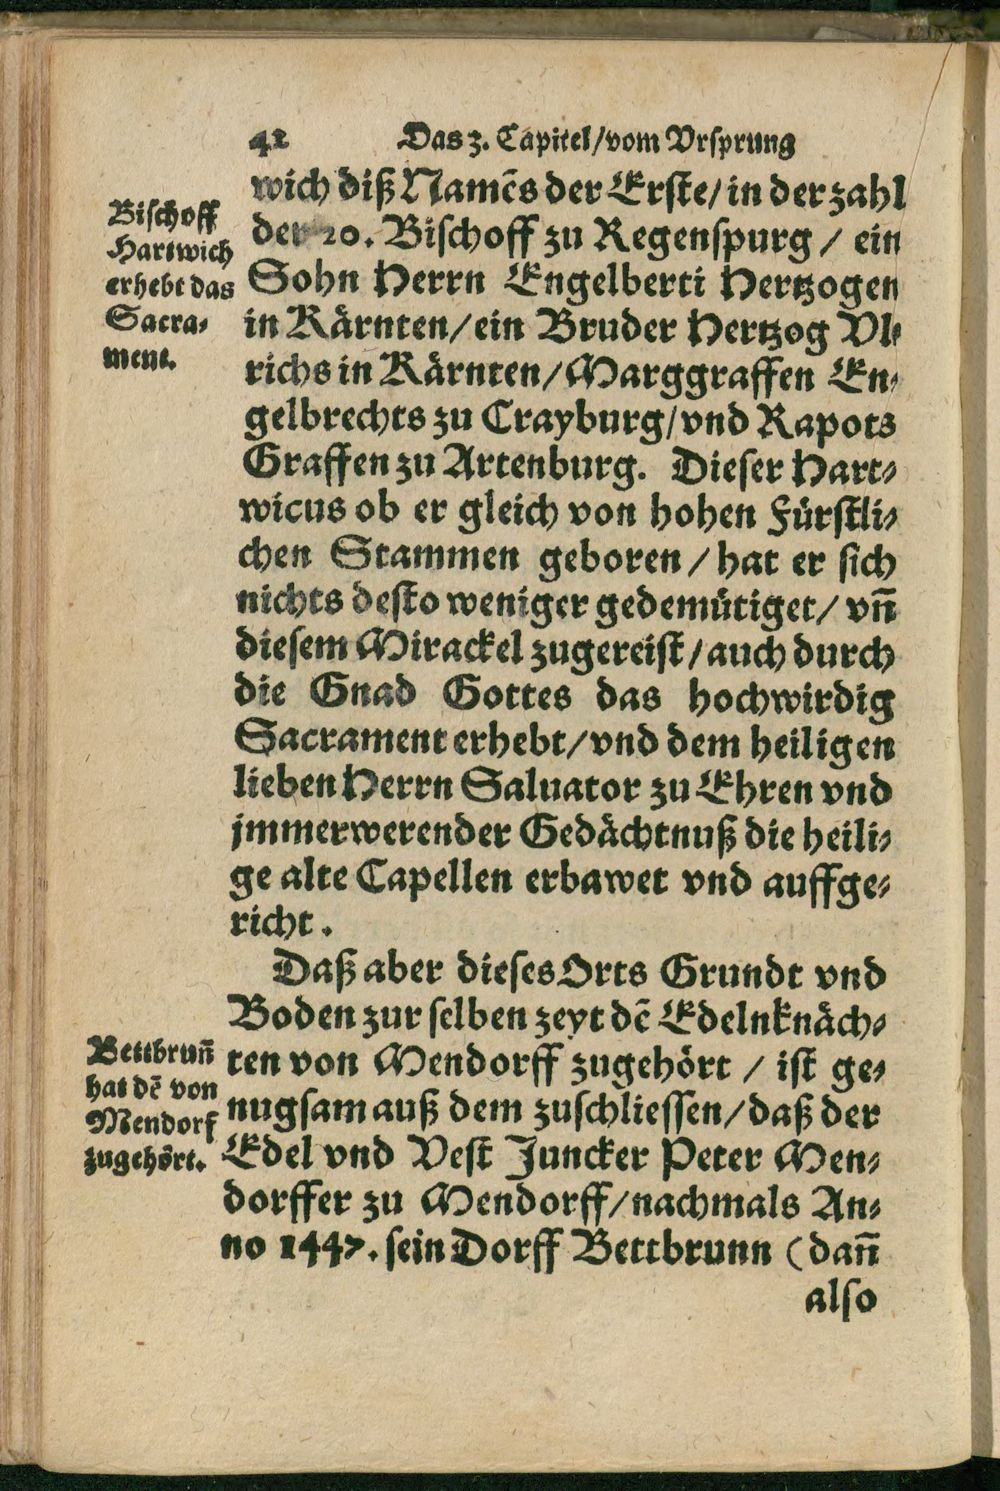 42 Das 3. Capitel/vom Vrsprung
wich diß Namẽs der Erste/in der zahl
der 20. Bischoff zu Regenspurg / ein
Sohn Herrn Engelberti Hertzogen
in Kärnten/ein Bruder Hertzog Vl-
richs in Kärnten/Marggraffen En-
gelbrechts zu Crayburg/vnd Rapots
Graffen zu Artenburg. Dieser Hart-
wicus ob er gleich von hohen Fürstli-
chen Stammen geboren / hat er sich
nichts desto weniger gedemütiget/ vñ
diesem Mirackel zugereist/auch durch
die Gnad Gottes das hochwirdig
Sacrament erhebt/vnd dem heiligen
lieben Herrn Saluator zu Ehren vnd
jmmerwerender Gedächtnuß die heili-
ge alte Capellen erbawet vnd auffge-
richt.
Bischoff
Hartwich
erhebt das
Sacra-
ment.
Daß aber dieses Orts Grundt vnd
Boden zur selben zeyt dẽ Edelnknäch-
ten von Mendorff zugehört / ist ge-
nugsam auß dem zuschliessen/daß der
Edel vnd Vest Juncker Peter Men-
dorffer zu Mendorff/nachmals An-
no 1447. sein Dorff Bettbrunn (dañ
Bettbruñ
hat dẽ von
Mendorf
zugehört.
also